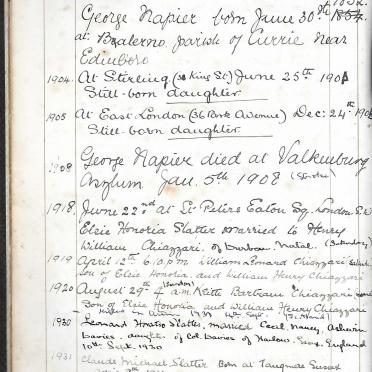 1852.
George Napier born June 30th 1854
at Balerno, parish of Currie near
Edinboro
1904. At Sterling (38 King St.) June 25th 1904
Still-born daughter.
1905 At East London (36 Park Avenue) Dec: 24th 1905
Still-born daughter.
1908 George Napier died at Valkenburg
Asylum Jan. 5th 1908 (Sunday)
1918. June 22nd at St Peters Eaton Sq. London. S.W
Elsie Honoria Slatter married to Henry
William Chiazzari. of Durban Natal. (Saturday)
1919 April 12th 6.10 p.m William Leonard Chiazzari
Son of Elsie Honoria. and William Henry Chiazzari
1920 August 29th (Sunday) 4 a.m Keith Bartram Chiazzari
Son of Elsie Honoria and William Henry Chiazzari
in 1939
1930 Leonard Horatio Slatter, married Cecil Nancy, Acheson
Davies. daughter of Col Davies of Harlow. Essex. England
10th Sept. 1930
1931 Claude Michael Slatter Born at Tangmere Sussex